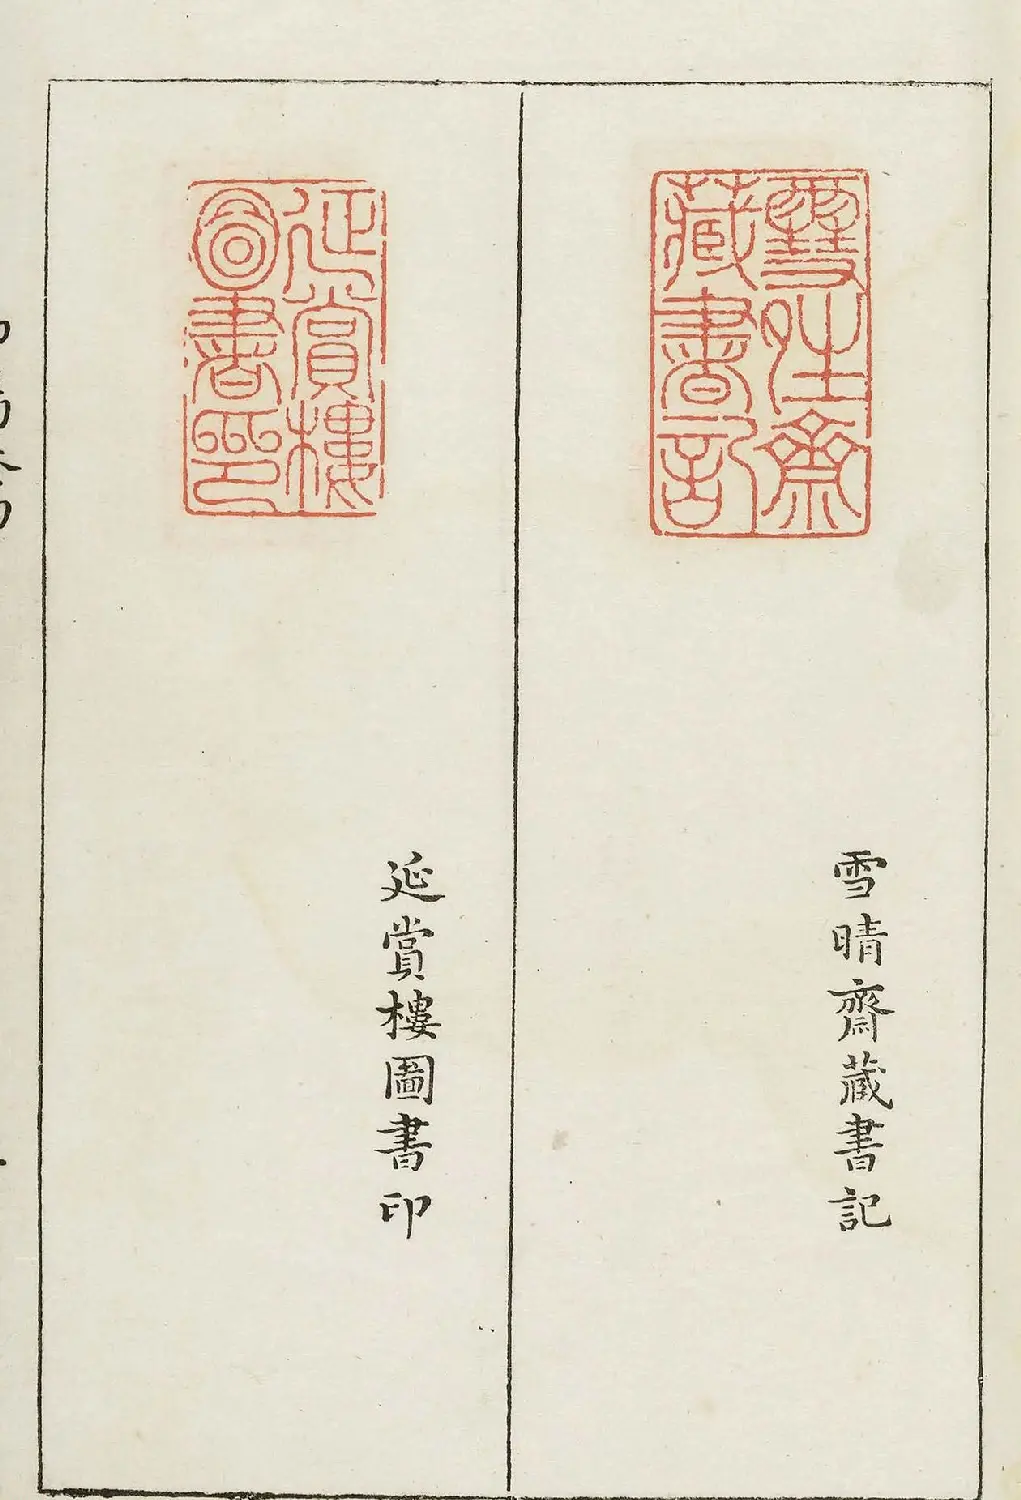 雪晴齋
藏書記
雪晴齋藏書記
延賞樓
圖書印
延賞樓圖書印